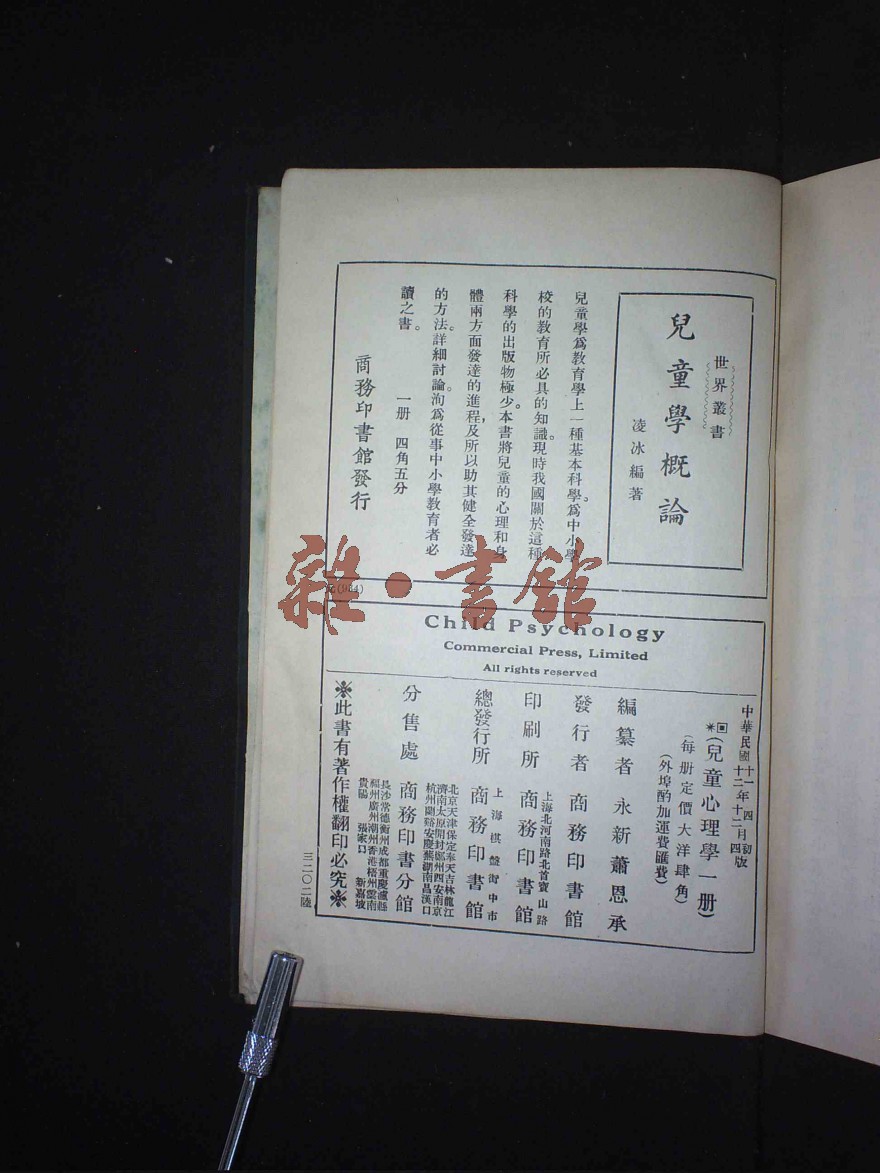 世界叢書
兒童學概論
凌冰編著
兒童學爲教育學上一種基本科學。爲中小學
校的教育所必具的知識。現時我國關於這種
科學的出版物極少。本書將兒童的心理和身
體兩方面發達的進程,及所以助其健全發達
的方法。詳細討論。洵爲從事中小學教育者必
讀之書。
一册 四角五分
商務印書館發行
元(934)
雜·書館
Child Psychology
Commercial Press, Limited
All rights reserved
中華民國十一年四月初版
十二年十二月四版
(兒童心理學一册)
(每册定價大洋肆角)
(外埠酌加運費匯費)
編纂者 永新蕭恩承
發行者 商務印書館
印刷所 上海北河南路北首寶山路 商務印書館
總發行所 上海棋盤街中市 商務印書館
分售處 商務印書分館
北京天津保定奉天吉林龍江
濟南太原開封鄭州西安南京
杭州蘭谿安慶蕪湖南昌漢口
長沙常德衡州成都重慶瀘縣
福州廣州潮州香港梧州雲南
貴陽 張家口 新嘉坡
※此書有著作權翻印必究※
三二〇二陸